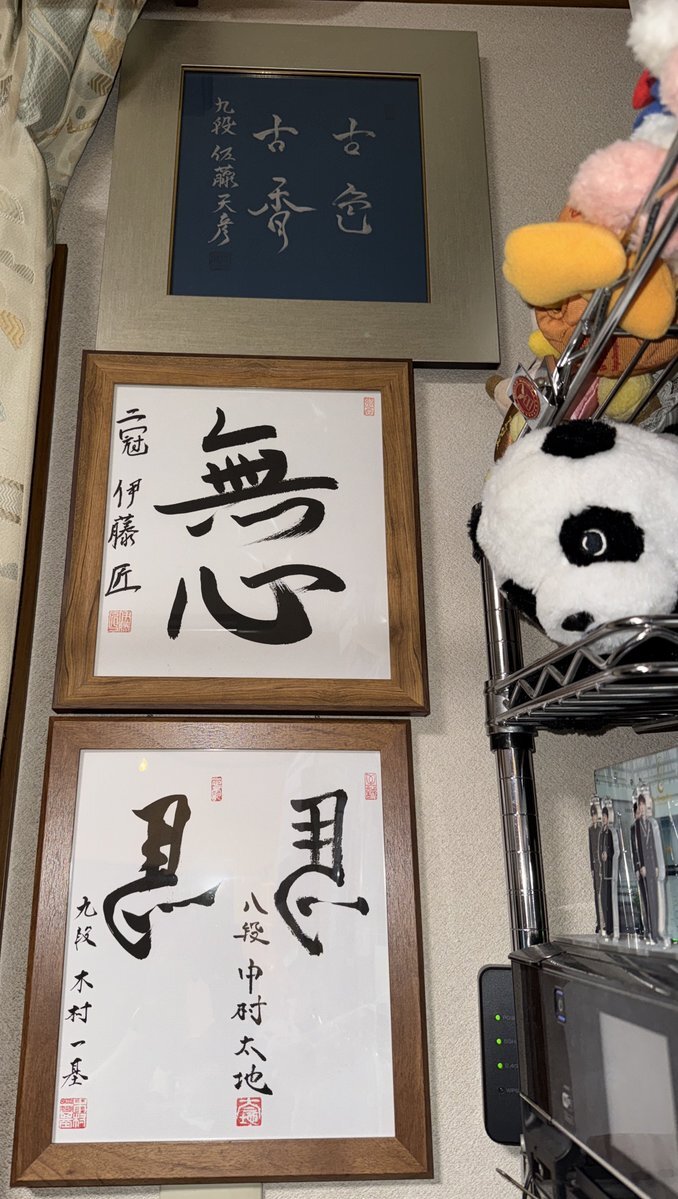 古色
古香
九段 佐藤天彦
無心
二冠 伊藤 匠
八段 中村太地
九段 木村一基
2.4G
WPS